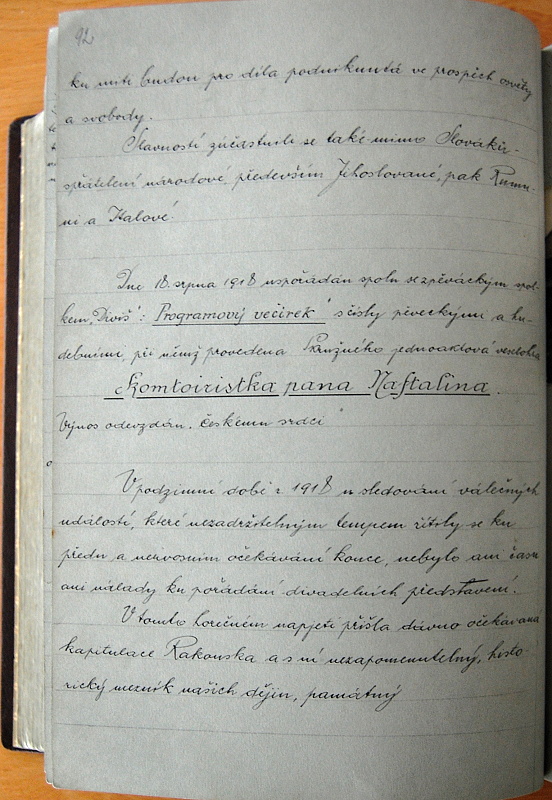 92
ku miti budou pro díla podniknutá ve prospěch osvěty
a svobody.
Slavností zúčastnili se také mimo Slováků -
spřátelení národové, především Jihoslované, pak Rumu-
ni a Italové.
Dne 18. srpna 1918 uspořádán spolu se zpěváckým spol-
kem „Diviš": Programový večírek s čísly pěveckými a hu-
debními, při němž provedena Skružného jednoaktová veselohra
Komtoiristka pana Naftalina.
Výnos odevzdán „Českému srdci"
V podzimní době r. 1918 u sledování válečných
událostí, které nezadržitelným tempem řítily se ku
předu a nervosním očekávání konce, nebylo ani času
ani nálady ku pořádání divadelních představení.
V tomto horečném napjetí přišla dávno očekávaná
kapitulace Rakouska a s ní nezapomenutelný, histo-
rický mezník našich dějin, památný